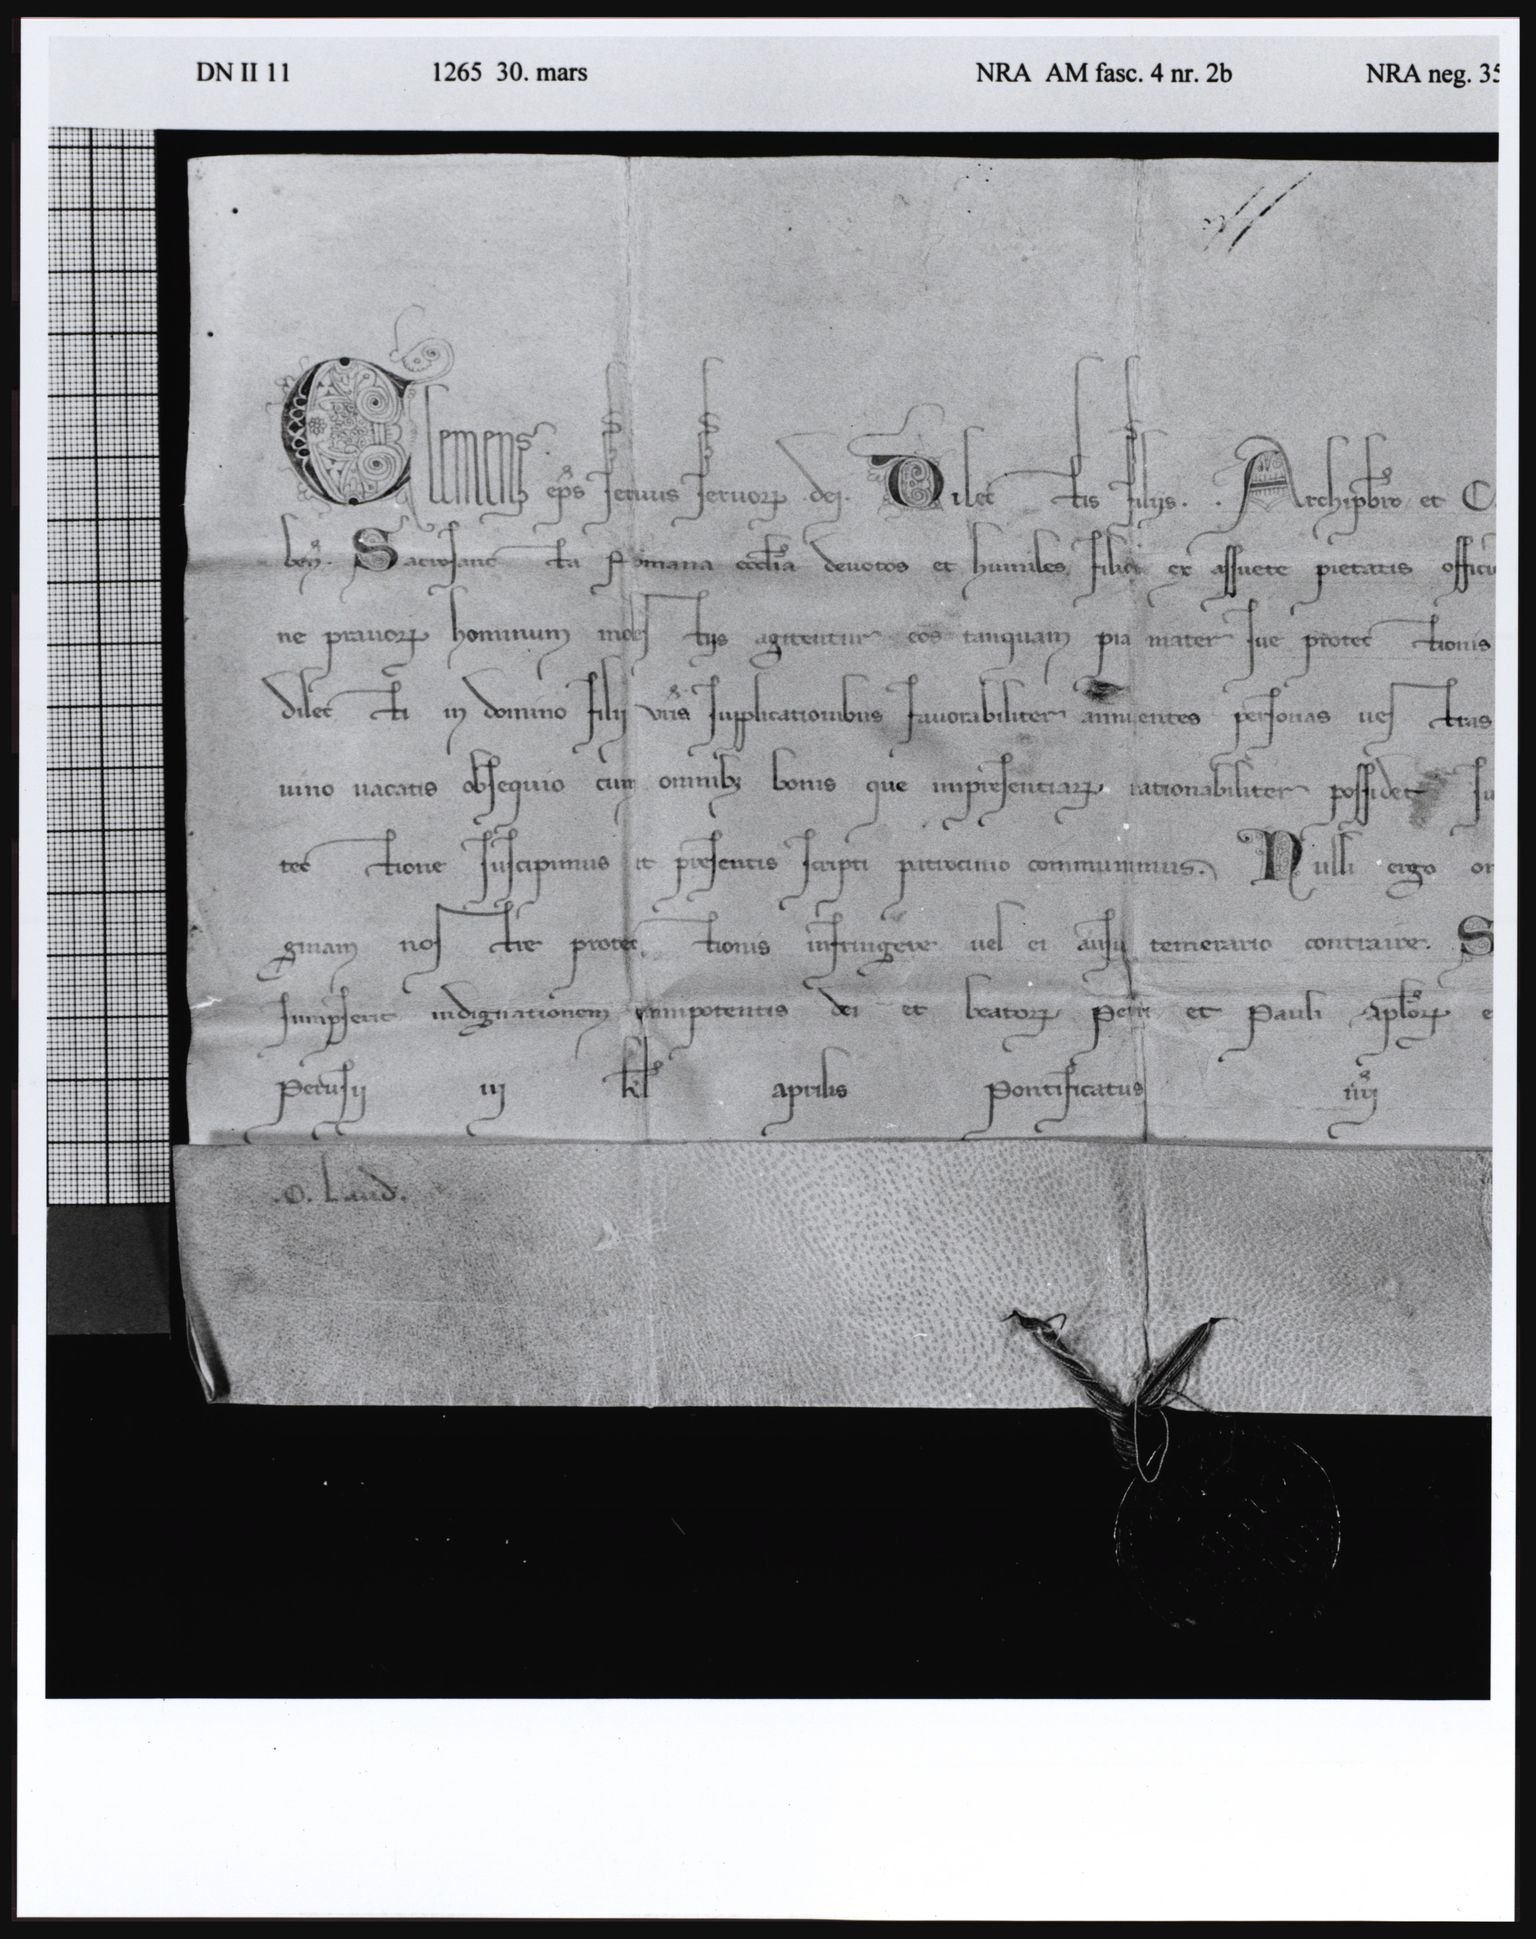 DN II 11 1265 30. mars NRA AM fasc. 4 nr. 2b NRA neg. 35
Clemens ep̄s seruus seruoꝝ dei. Dilectis filijs. . Archipb̄ro et C
beñ. Sacrosancta Romana eccl̄ia deuotos et humiles filios ex assuete pietatis offici
ne prauoꝝ hominum molestijs agitentur eos tanquam pia mater sue protectionis
dilecti in domino filij vr̄is supplicationibus fauorabiliter annuentes personas uestras
uino uacatis obsequio cum omnibꝫ bonis que impresentiaꝝ rationabiliter possidet su
tectione suscipimus et presentis scripti patrocinio communimus. Nulli ergo om
ginam nostre protectionis infringere uel ei ausu temerario contraire. S
sumpserit indignationem omnipotentis dei et beatoꝝ Petri et Pauli apl̄oꝝ e
Perusij iij kl̄ aprilis Pontificatus nr̄i
.O. Laud.